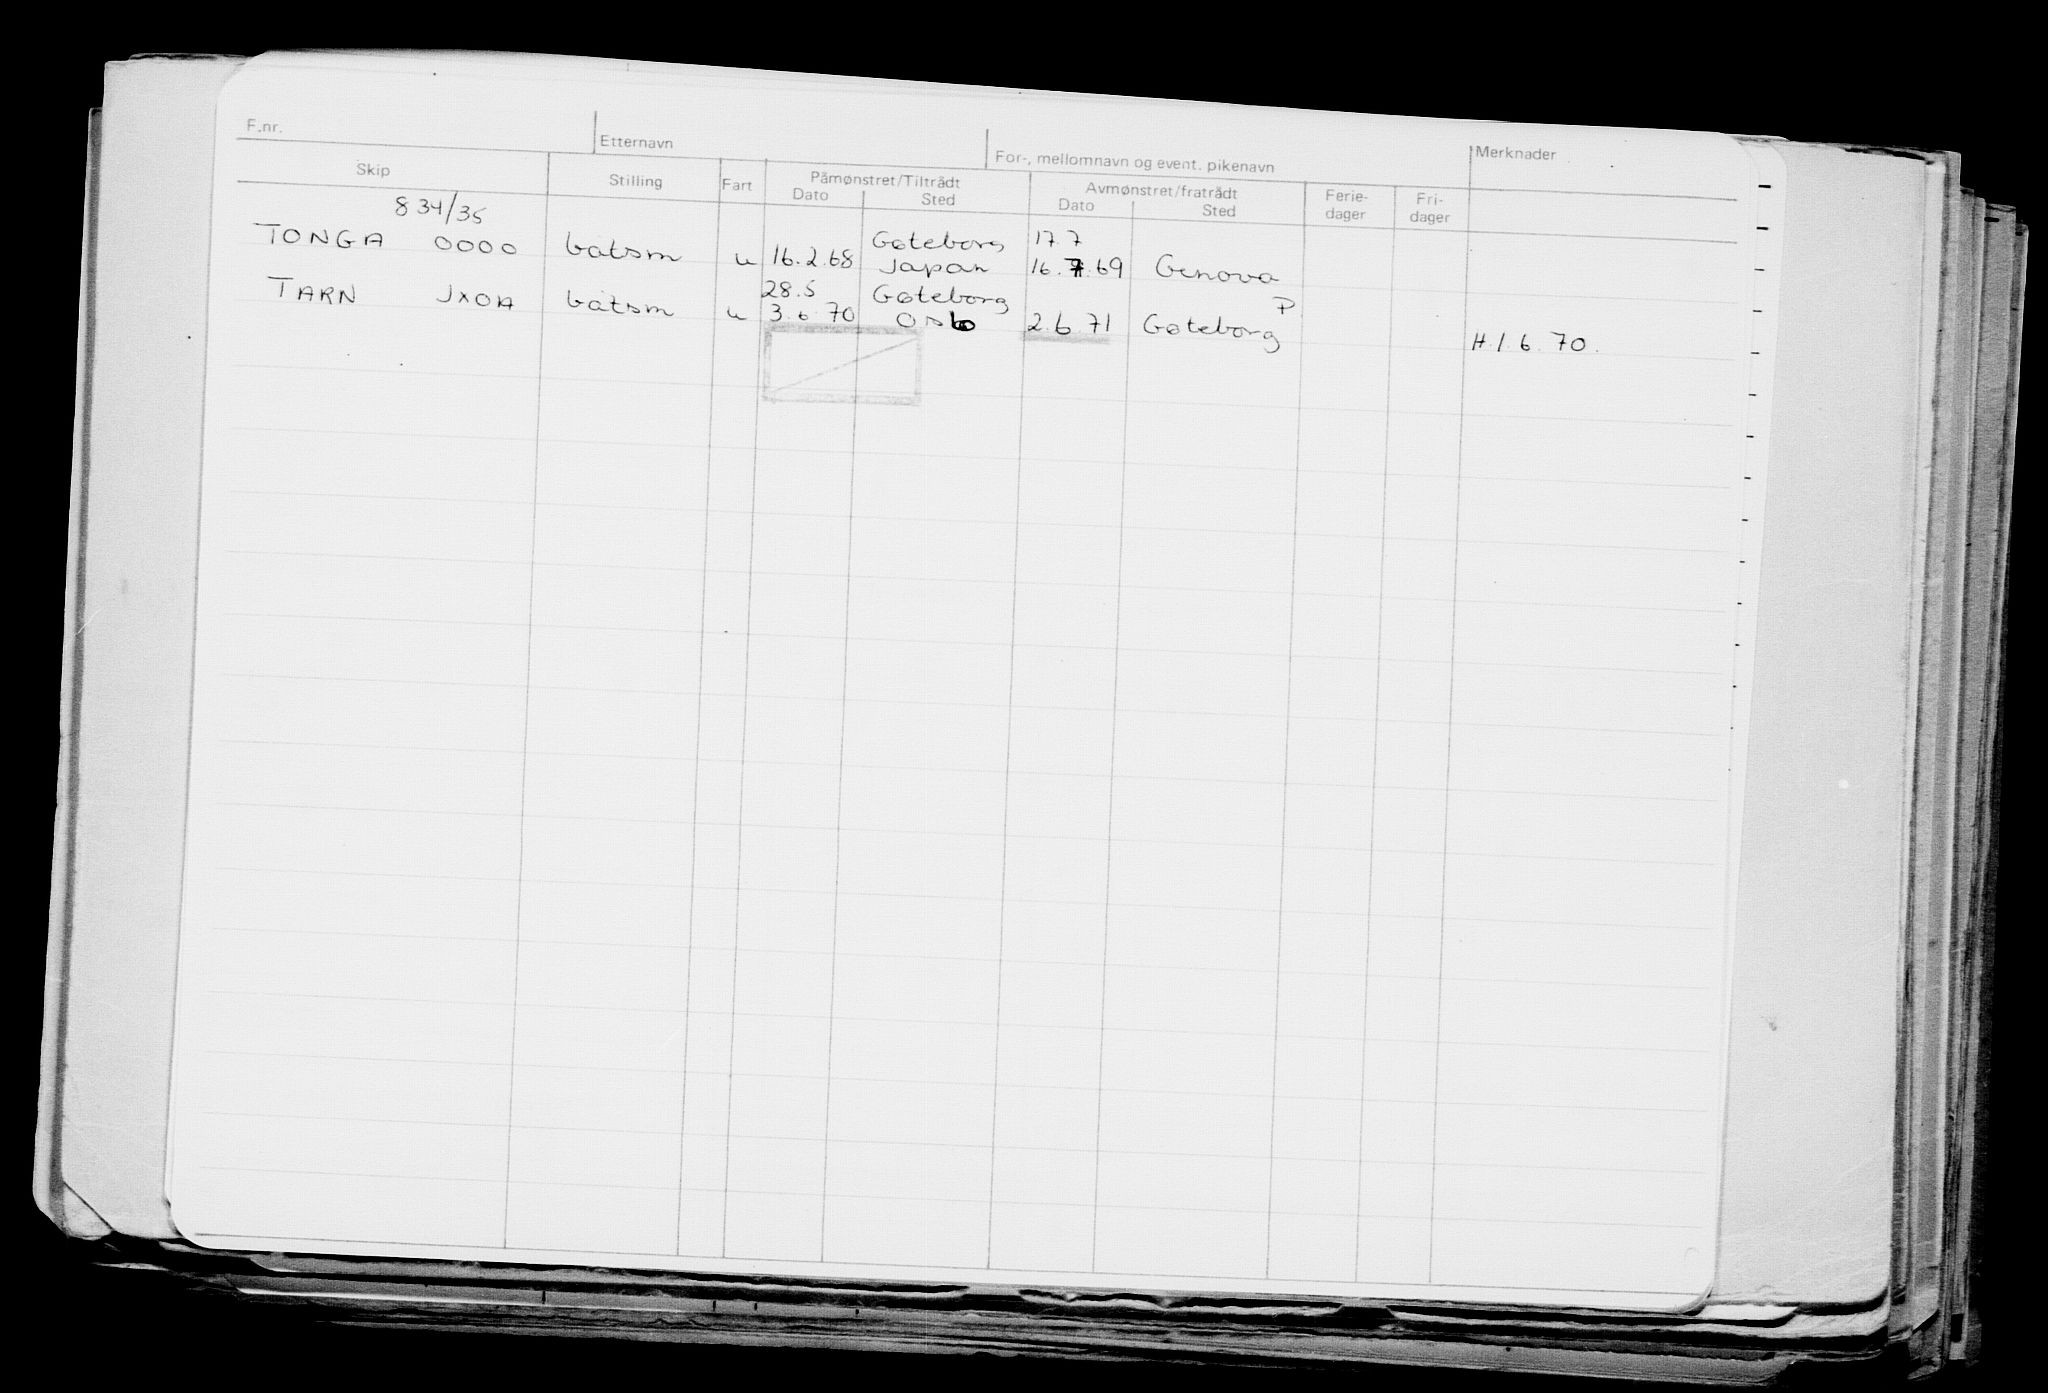 F.nr. Etternavn For-, mellomnavn og event. pikenavn Merknader
Skip Stilling Fart Påmønstret/Tiltrådt Avmønstret/fratrådt Ferie- Fri-
Dato Sted Dato Sted dager dager
834/35
TONGA OOOO båtsm u 16.2.68 Gøteborg 17.7
Japan 16.7.69 Genova
TARN JXOA båtsm 28.5 Gøteborg P
u 3.6.70 Oslo 2.6.71 Gøteborg H.1.6.70.